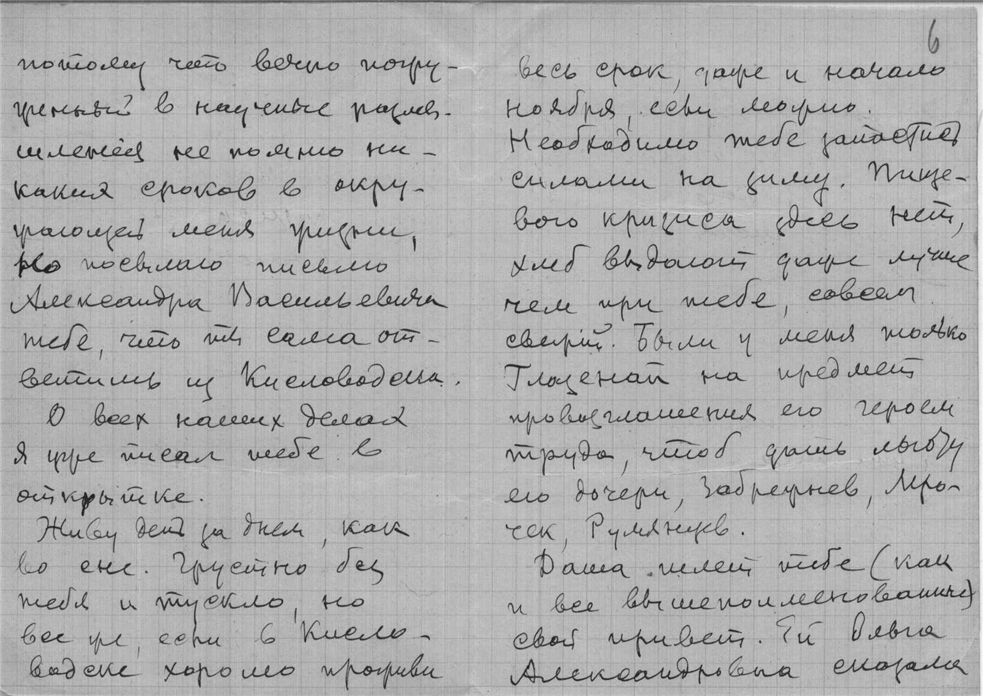 потому что вечно погру-
женный в научные размы-
шления не помню ни-
каких сроков в окру-
жающей меня жизни,
но посылаю письмо
Александра Васильевича
тебе, чтоб ты сама от-
ветишь из Кисловодска.
О всех наших делах
я уже писал тебе в
открытке.
Живу день за днем, как
во сне. Грустно без
тебя и тускло, но
все же, если в Кисло-
водске хорошо проживи
6
весь срок, даже и начало
ноября, если можно.
Необходимо тебе запастись
силами на зиму. Пище-
вого кризиса здесь нет,
хлеб выдают даже лучше
чем при тебе, совсем
свежий. Были у меня только
Глазенап на предмет
провозглашения его героем
труда, чтоб дать льготу
его дочери, Забрежнев, Мро-
чек, Румянцев.
Даша шлет тебе (как
и все вышепоименованные)
свой привет. Ей Ольга
Александровна сказала